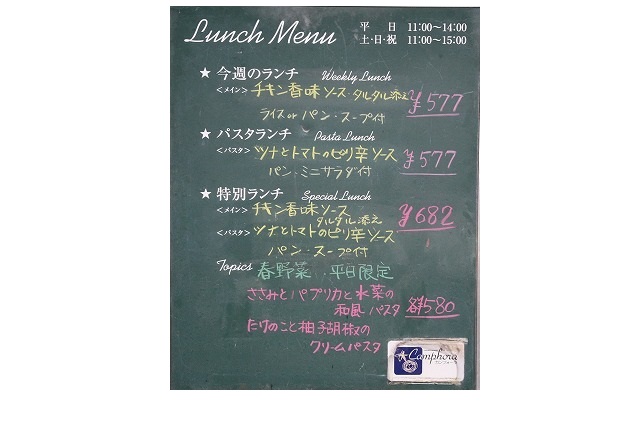 Lunch Menu
平日 11:00〜14:00
土・日・祝 11:00〜15:00
★ 今週のランチ Weekly Lunch
<メイン> チキン香味ソース・タルタル添え ¥577
ライス or パン・スープ付
★ パスタランチ Pasta Lunch
<パスタ> ツナとトマトのピリ辛ソース ¥577
パン・ミニサラダ付
★ 特別ランチ Special Lunch
<メイン> チキン香味ソース ¥682
タルタル添え
<パスタ> ツナとトマトのピリ辛ソース
パン・スープ付
Topics 春野菜 平日限定
ささみとパプリカと水菜の
和風パスタ 各¥580
たけのこと柚子胡椒の
クリームパスタ
Camphora